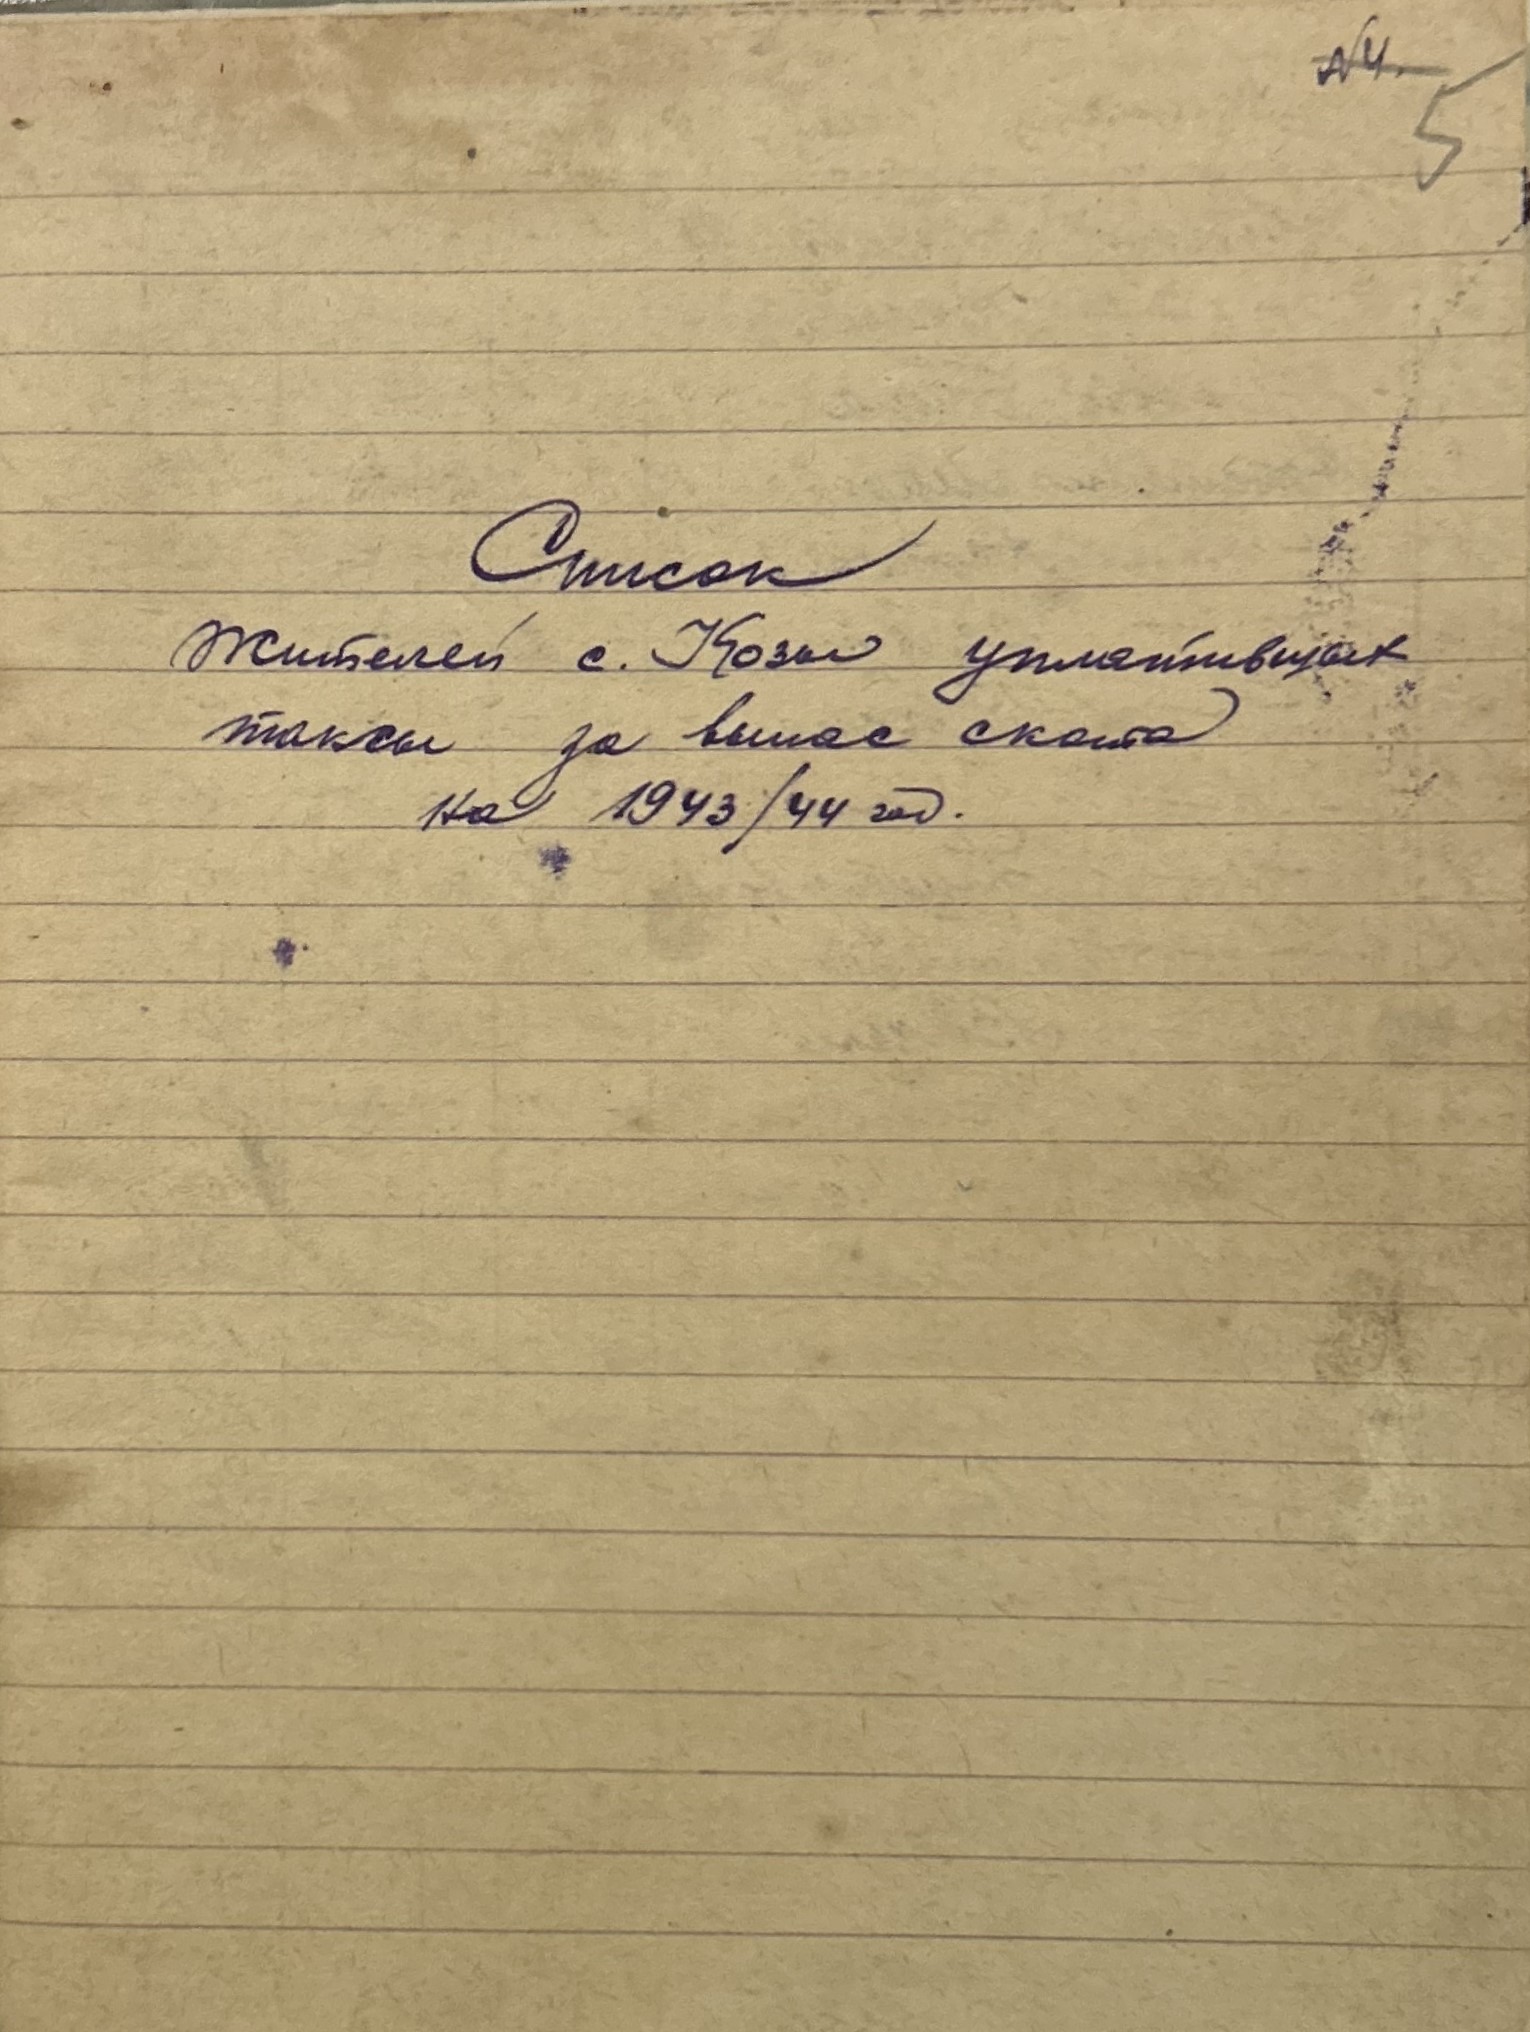 №4.
5
Список
Жителей с. Козы уплативших
таксы за выпас скота
на 1943/44 год.